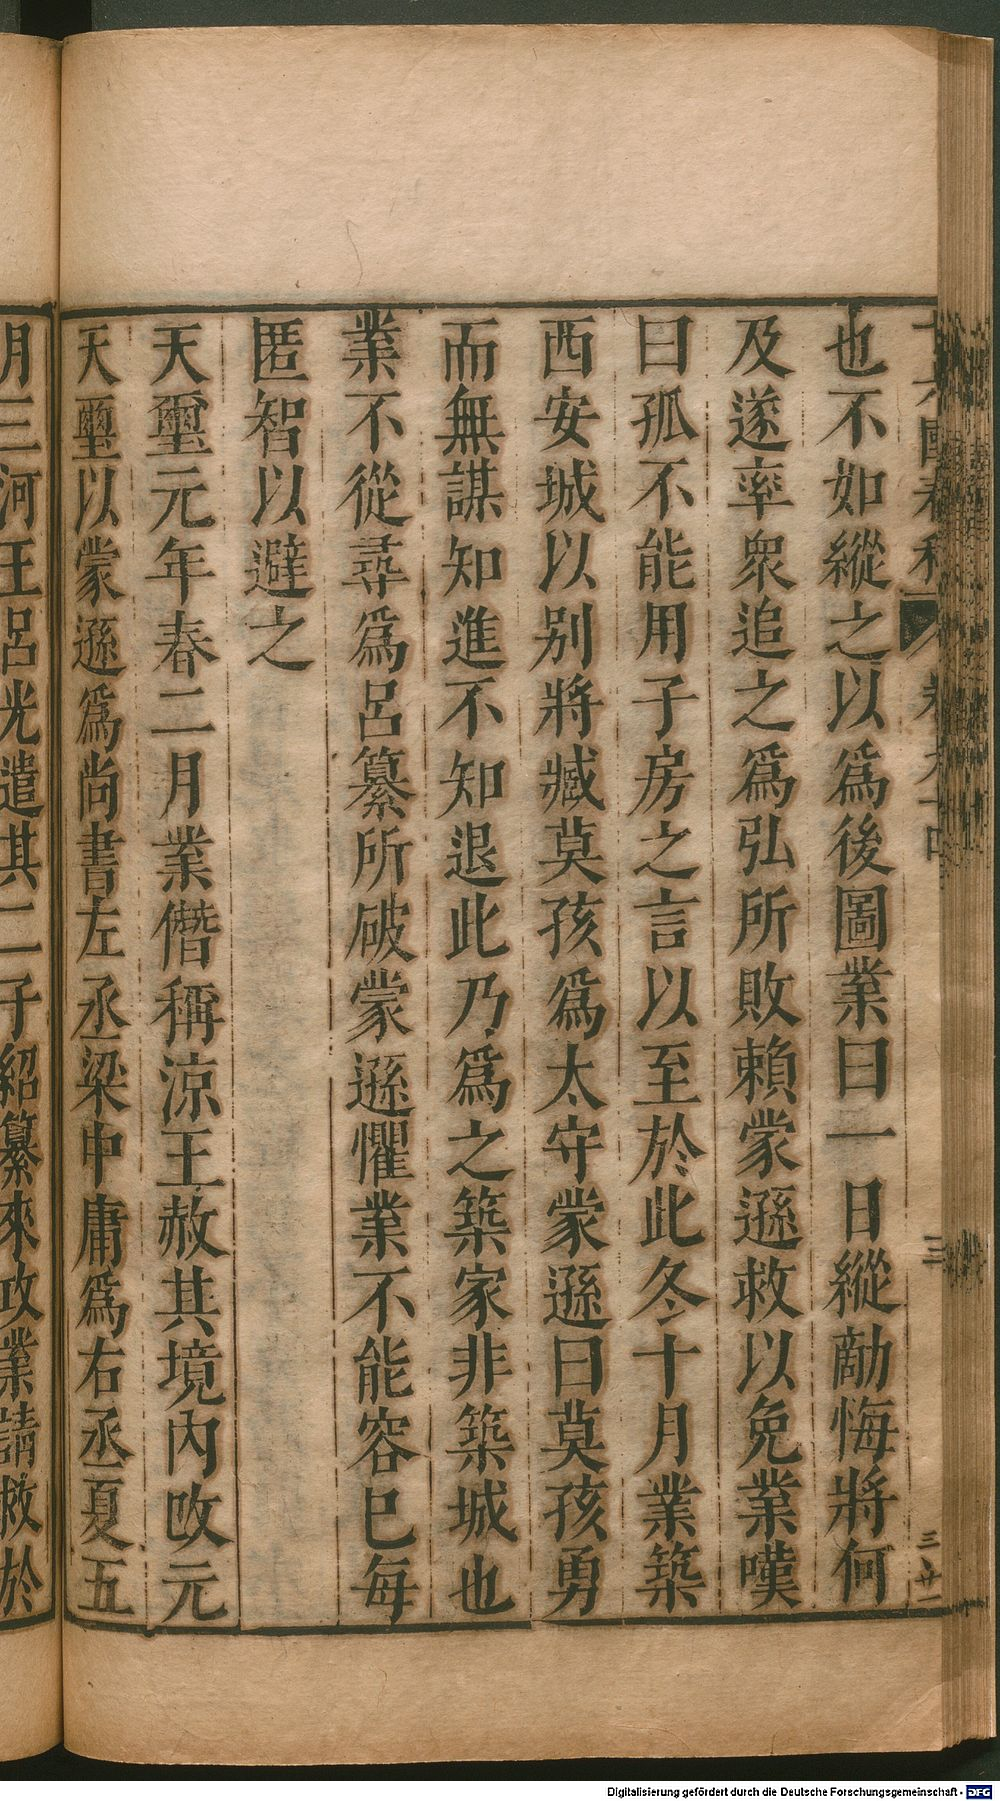 也不如縱之以爲後圖業曰一日縱敵悔將何
及遂率衆追之爲弘所敗賴蒙遜救以免業嘆
曰孤不能用子房之言以至於此冬十月業築
西安城以别將臧莫孩爲太守蒙遜曰莫孩勇
而無謀知進不知退此乃爲之築冢非築城也
業不從尋爲呂纂所破蒙遜懼業不能容已每
匿智以避之
天璽元年春二月業僭稱涼王赦其境內改元
天璽以蒙遜爲尚書左丞梁中庸爲右丞夏五
月三河王呂光遣其二子紹纂來攻業請救於
Digitalisierung gefördert durch die Deutsche Forschungsgemeinschaft - DFG